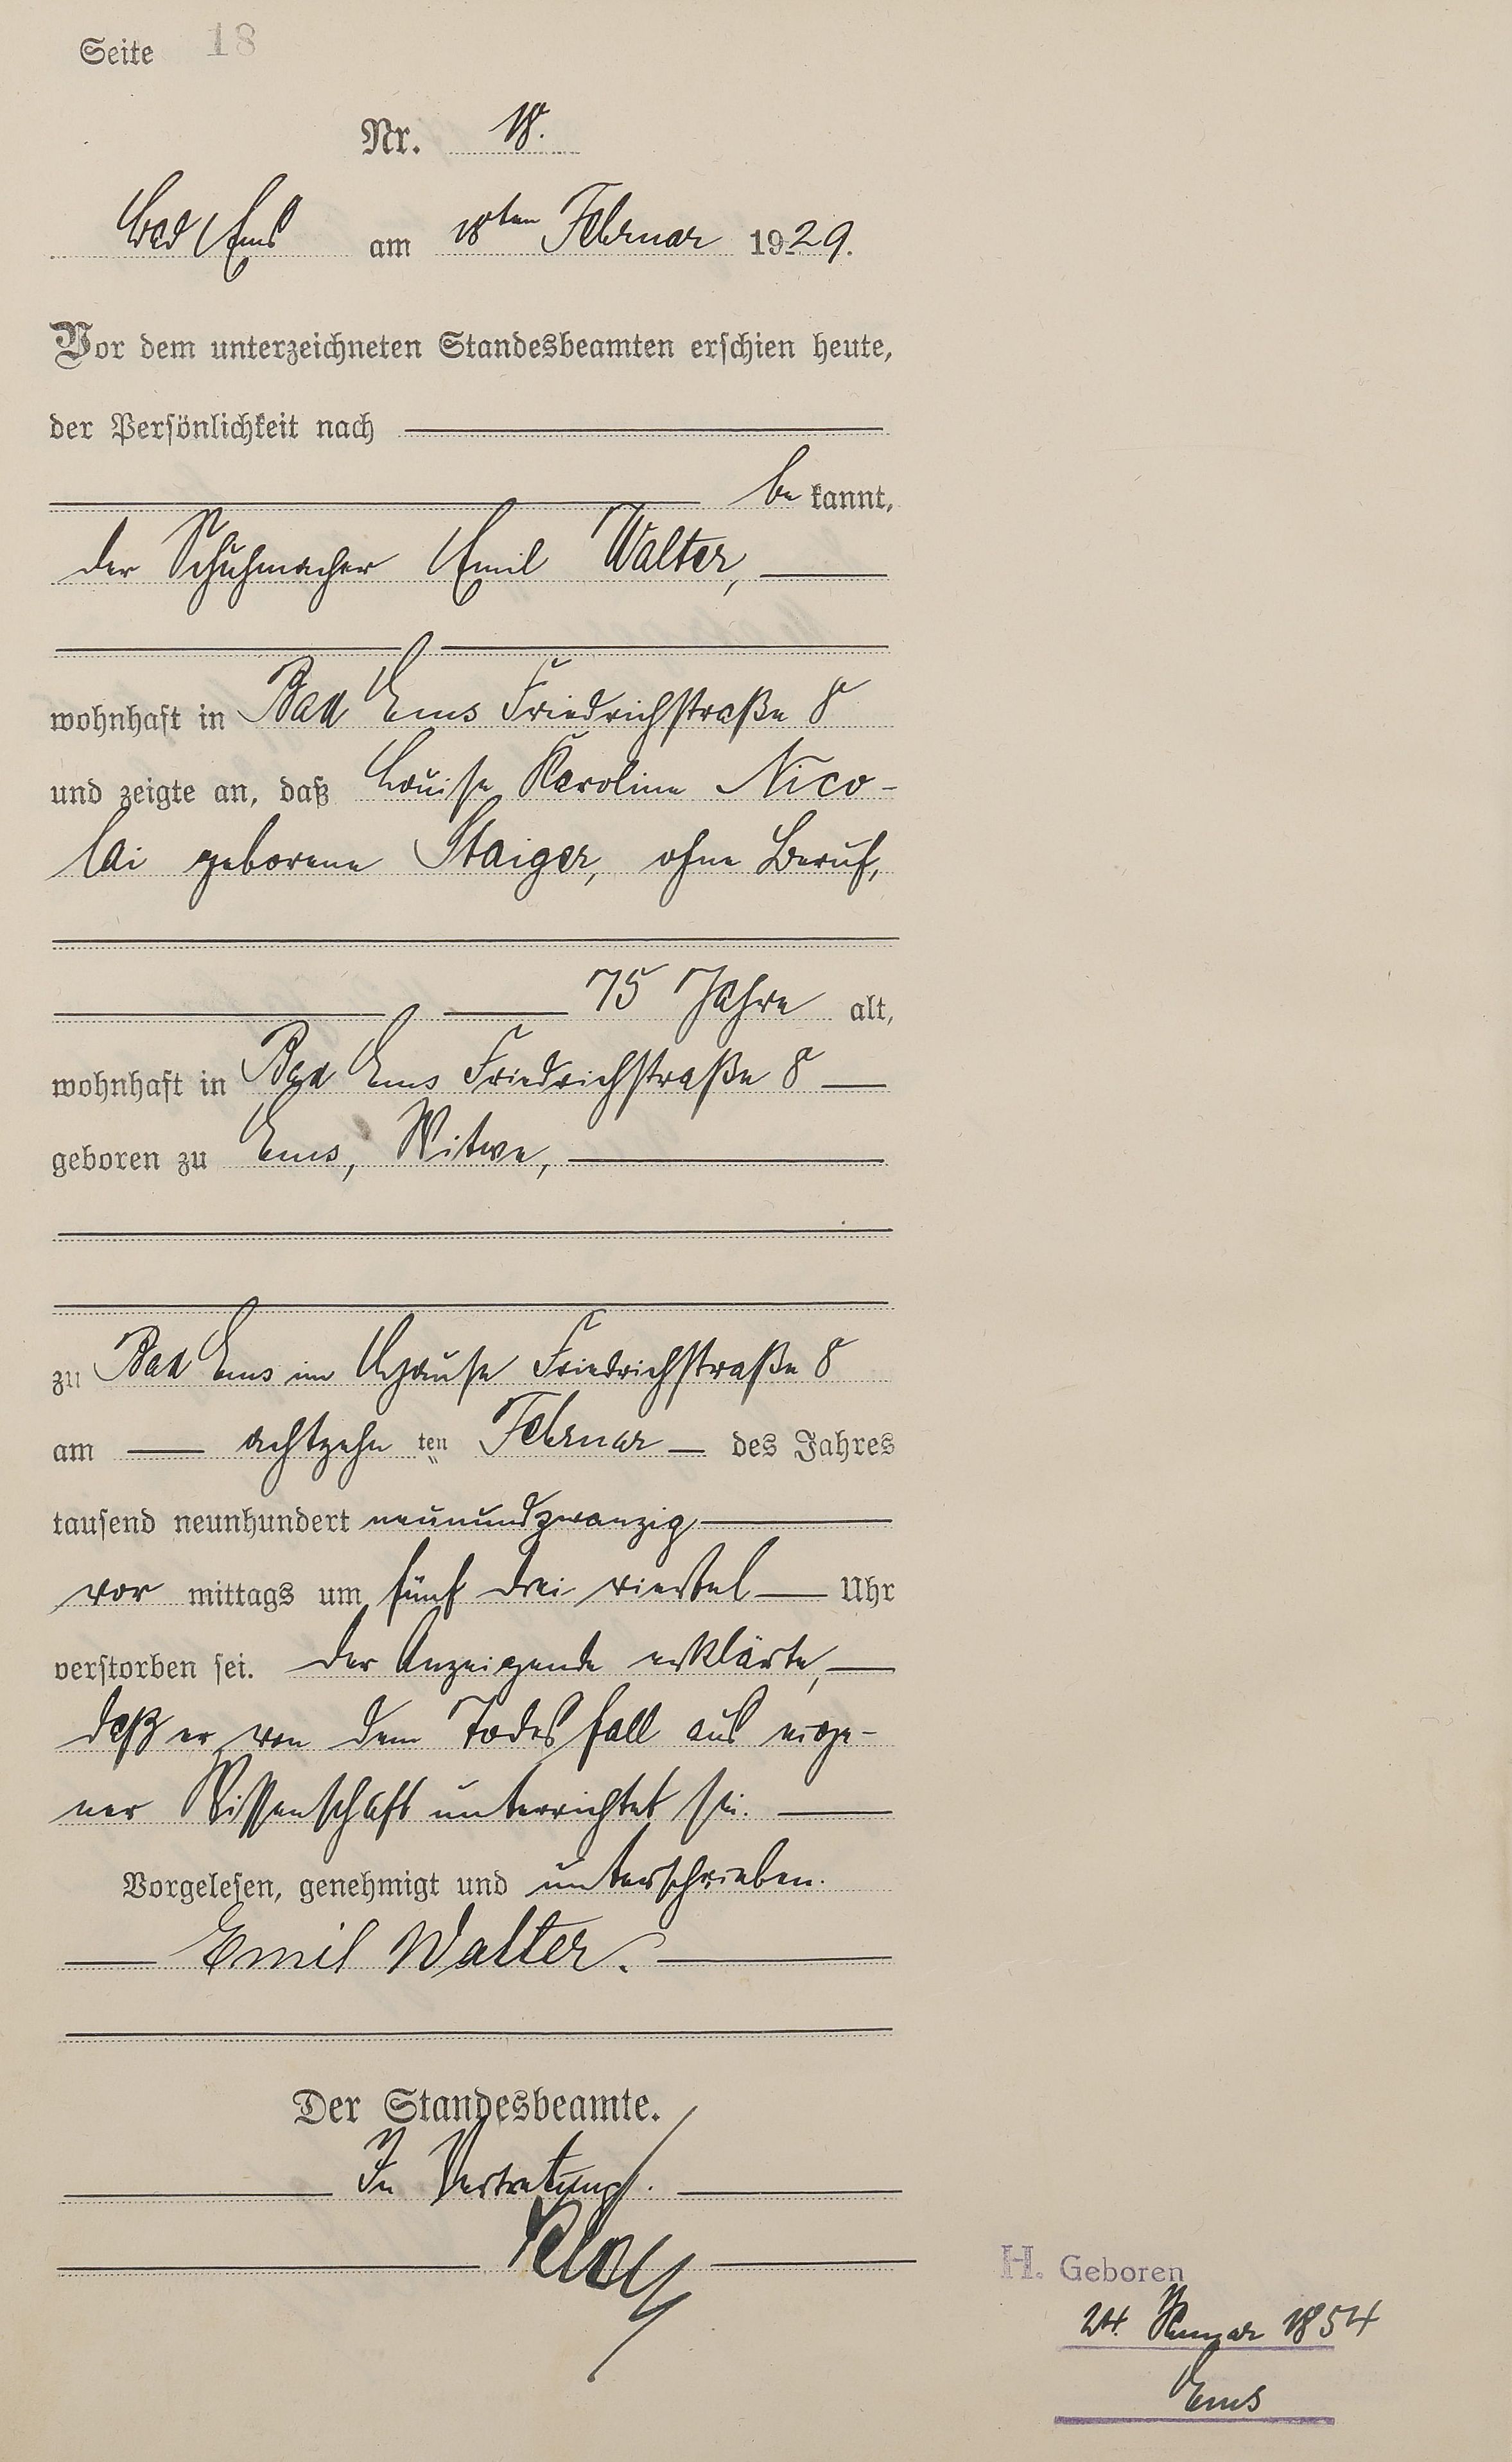 Seite 18
Nr. 18.
Bad Ems am 18ten Februar 1929.
Vor dem unterzeichneten Standesbeamten erschien heute,
der Persönlichkeit nach
be kannt,
der Schuhmacher Emil Walter,
wohnhaft in Bad Ems Friedrichstraße 8
und zeigte an, daß Louise Karoline Nico-
lai geborene Staiger, ohne Beruf,
75 Jahre alt,
wohnhaft in Bad Ems Friedrichstraße 8
geboren zu Ems, Witwe,
zu Bad Ems im Hause Friedrichstraße 8
am achtzehn ten Februar des Jahres
tausend neunhundert neunundzwanzig
vor mittags um fünf drei viertel Uhr
verstorben sei. Der Anzeigende erklärte,
daß er von dem Todesfall aus eige-
ner Wissenschaft unterrichtet sei.
Vorgelesen, genehmigt und unterschrieben.
Emil Walter.
Der Standesbeamte.
In Vertretung.
H. Geboren
24. Januar 1854
Ems